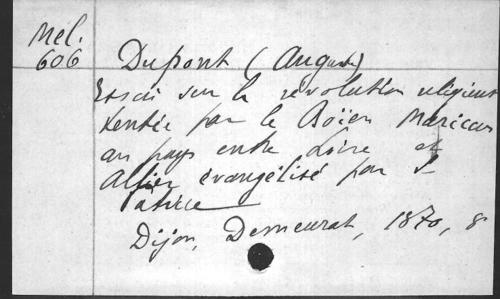 Mel.
606
Dupont (Auguste)
Essai sur la révolution religieuse
tentée par le Boïen Maricus
au pays entre Loire et
Allier évangélisé par St
Patrice
Dijon, Demeurat, 1870, 8